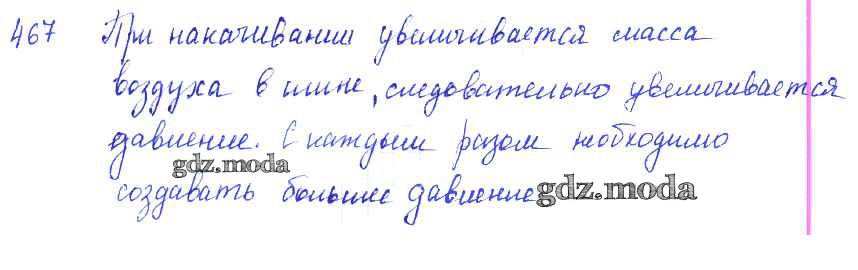 467 При накачивании увеличивается масса
воздуха в шине, следовательно увеличивается
давление. С каждым разом необходимо
gdz.moda
создавать больше давление
gdz.moda